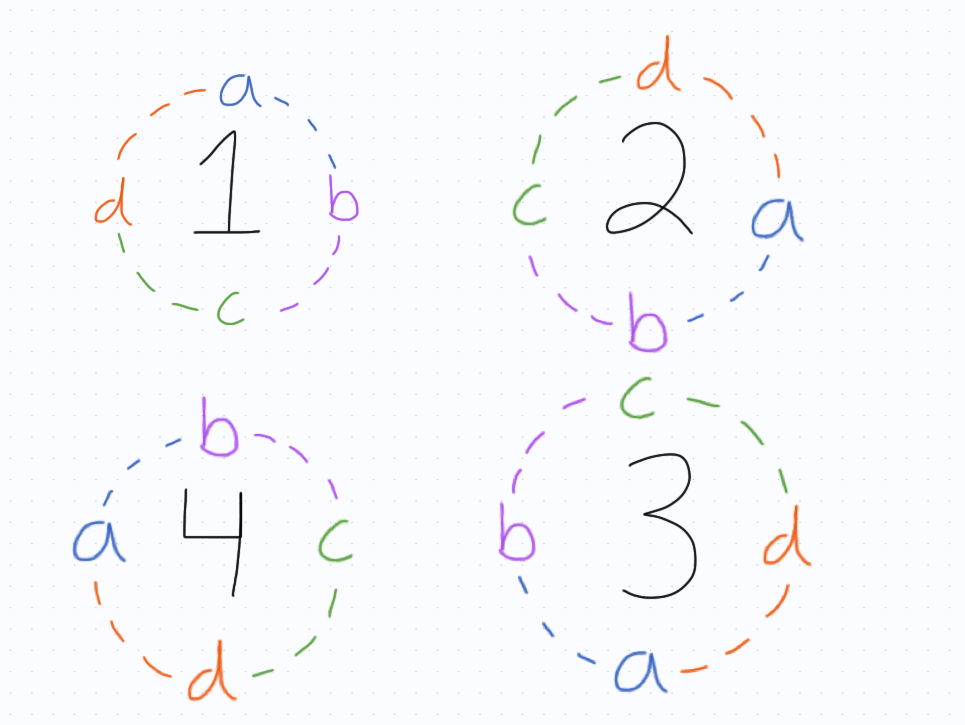 a
d 1 b
c
d
c 2 a
b
b
a 4 c
d
c
b 3 d
a